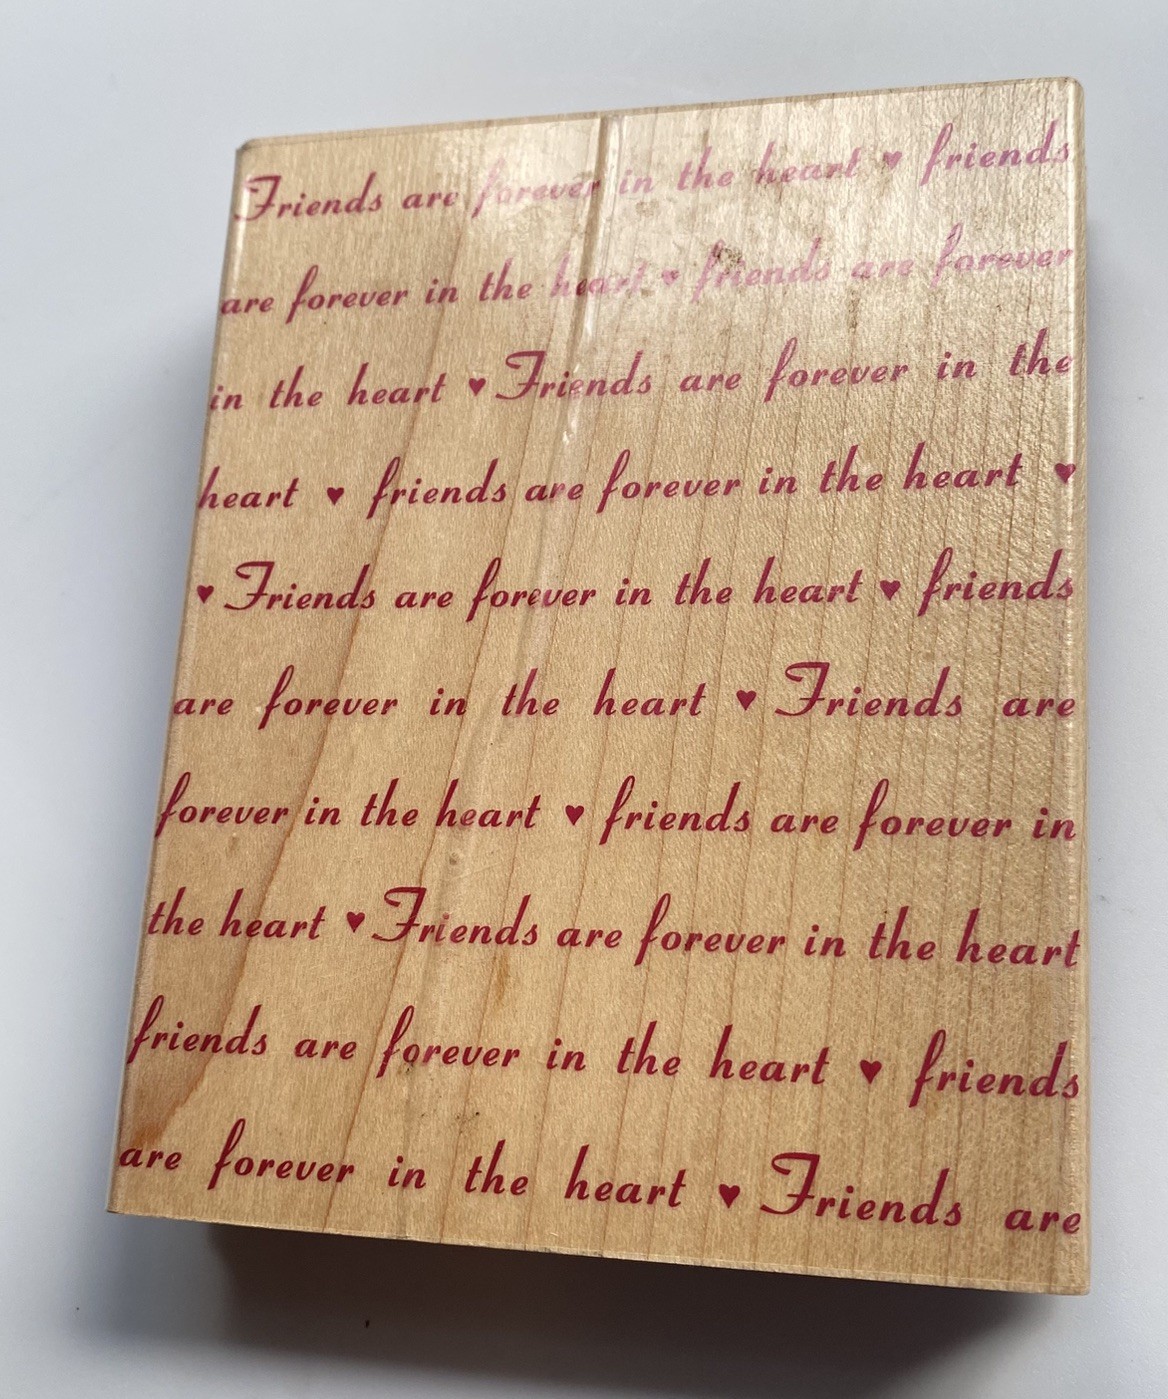 Friends are forever in the heart ♥ friends
are forever in the heart ♥ friends are forever
in the heart ♥ Friends are forever in the
heart ♥ friends are forever in the heart ♥
♥ Friends are forever in the heart ♥ friends
are forever in the heart ♥ Friends are
forever in the heart ♥ friends are forever in
the heart ♥ Friends are forever in the heart
friends are forever in the heart ♥ friends
are forever in the heart ♥ Friends are